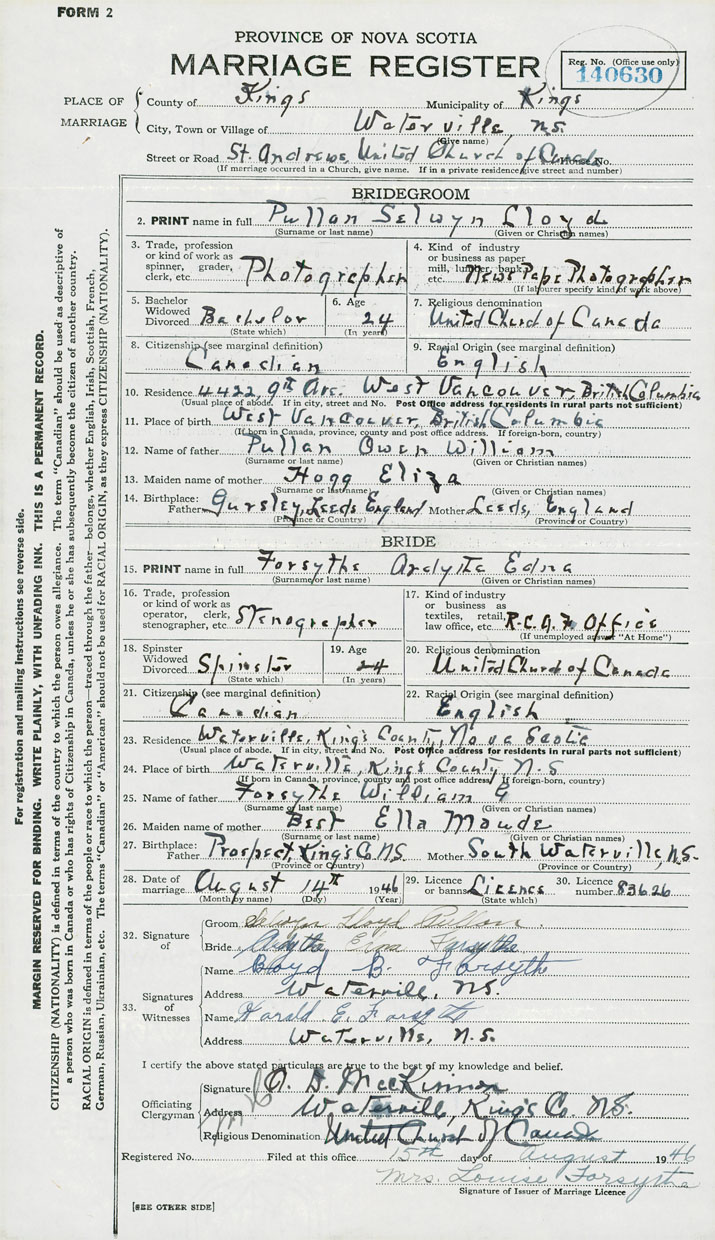 FORM 2
PROVINCE OF NOVA SCOTIA
MARRIAGE REGISTER
Reg. No. (Office use only)
140630
PLACE OF MARRIAGE
County of Kings Municipality of Kings
City, Town or Village of Waterville, N.S.
(Give name)
Street or Road St. Andrews, United Church of Canada No.
(If marriage occurred in a Church, give name. If in a private residence give street and number)
BRIDEGROOM
2. PRINT name in full Pullan Selwyn Lloyd
(Surname or last name) (Given or Christian names)
3. Trade, profession or kind of work as spinner, grader, clerk, etc. Photographer
4. Kind of industry or business as paper mill, lumber, bank, etc. News Pape Photographer
(If labourer specify kind of work above)
5. Bachelor Widowed Divorced Bachelor
(State which)
6. Age 24
(In years)
7. Religious denomination
United Church of Canada
8. Citizenship (see marginal definition)
Canadian
9. Racial Origin (see marginal definition)
English
10. Residence 4422, 9th Ave. West Vancouver, British Columbia
(Usual place of abode. If in city, street and No. Post Office address for residents in rural parts not sufficient)
11. Place of birth West Vancouver, British Columbia
(If born in Canada, province, county and post office address. If foreign-born, country)
12. Name of father Pullan Owen William
(Surname or last name) (Given or Christian names)
13. Maiden name of mother Hogg Eliza
(Surname or last name) (Given or Christian names)
14. Birthplace: Father Leeds England Mother Leeds, England
(Province or Country) (Province or Country)
BRIDE
15. PRINT name in full Forsythe Ardythe Edna
(Surname or last name) (Given or Christian names)
16. Trade, profession or kind of work as operator, clerk, stenographer, etc Stenographer
17. Kind of industry or business as textiles, retail, law office, etc. R.C.A.F Office
(If unemployed answer "At Home")
18. Spinster Widowed Divorced Spinster
(State which)
19. Age 24
(In years)
20. Religious denomination
United Church of Canada
21. Citizenship (see marginal definition)
Canadian
22. Racial Origin (see marginal definition)
English
23. Residence Waterville, King's County, Nova Scotia
(Usual place of abode. If in city, street and No. Post Office address for residents in rural parts not sufficient)
24. Place of birth Waterville, King's County, N.S.
(If born in Canada, province, county and post office address. If foreign-born, country)
25. Name of father Forsythe William G
(Surname or last name) (Given or Christian names)
26. Maiden name of mother Best Ella Maude
(Surname or last name) (Given or Christian names)
27. Birthplace: Father Prospect, King's Co. N.S. Mother South Waterville, N.S.
(Province or Country) (Province or Country)
28. Date of marriage August 14th 1946
(Month by name) (Day) (Year)
29. Licence or banns Licence
(State which)
30. Licence number 83626
32. Signature of
Groom Selwyn Lloyd Pullan
Bride Ardythe Edna Forsythe
33. Signatures of Witnesses
Name Boyd B. Forsythe
Address Waterville, N.S.
Name Harold E. Forsythe
Address Waterville, N.S.
I certify the above stated particulars are true to the best of my knowledge and belief.
Officiating Clergyman
Signature D. MacKinnon
Address Waterville, King's Co. N.S.
Religious Denomination United Church of Canada
Registered No. Filed at this office 15th day of August 1946
Mrs. Louise Forsythe
Signature of Issuer of Marriage Licence
[SEE OTHER SIDE]
For registration and mailing instructions see reverse side.
MARGIN RESERVED FOR BINDING. WRITE PLAINLY, WITH UNFADING INK. THIS IS A PERMANENT RECORD.
CITIZENSHIP (NATIONALITY) is defined in terms of the country to which the person owes allegiance. The term "Canadian" should be used as descriptive of
a person who was born in Canada or who has rights of Citizenship in Canada, unless he or she has subsequently become the citizen of another country.
RACIAL ORIGIN is defined in terms of the people or race to which the person—traced through the father—belongs, whether English, Irish, Scottish, French,
German, Russian, Ukrainian, etc. The terms "Canadian" or "American" should not be used for RACIAL ORIGIN, as they express CITIZENSHIP (NATIONALITY).